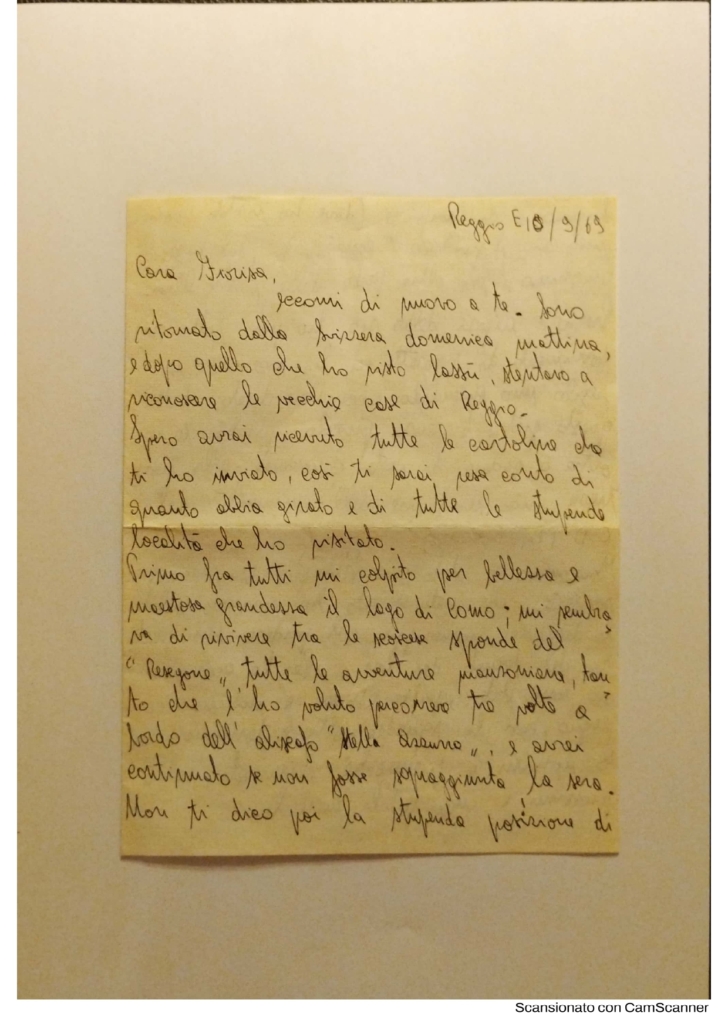 Reggio E 10/9/69
Cara Fiorisa,
eccomi di nuovo a te. Sono
ritornato dalla Svizzera domenica mattina,
e dopo quello che ho visto lassù, stentavo a
riconoscere le vecchie case di Reggio.
Spero avrai ricevuto tutte le cartoline che
ti ho inviato, così ti sarai resa conto di
quanto abbia girato e di tutte le stupende
località che ho visitato.
Primo fra tutti mi colpito per bellezza e
maestosa grandezza il lago di Como; mi sembra
va di rivivere tra le scoscese sponde del
"Resegone" tutte le avventure manzoniane, tan
to che l'ho voluto percorrere tre volte a
bordo dell'aliscafo "Stella Azzurra", e avrei
continuato se non fosse sopraggiunta la sera.
Non ti dico poi la stupenda posizione di
Scansionato con CamScanner